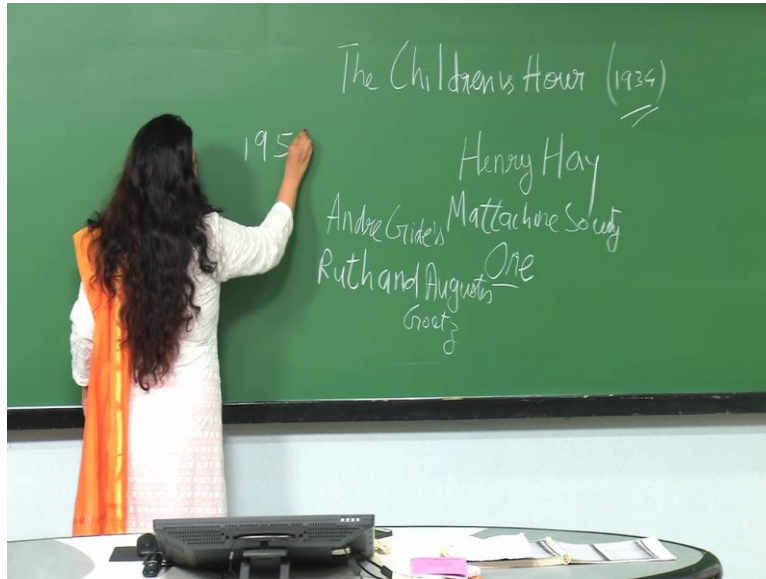 The Children's Hour (1934)
195
Henry Hay
Mattachine Society
One
Andre Gide's
Ruth and Augustus
Goetz